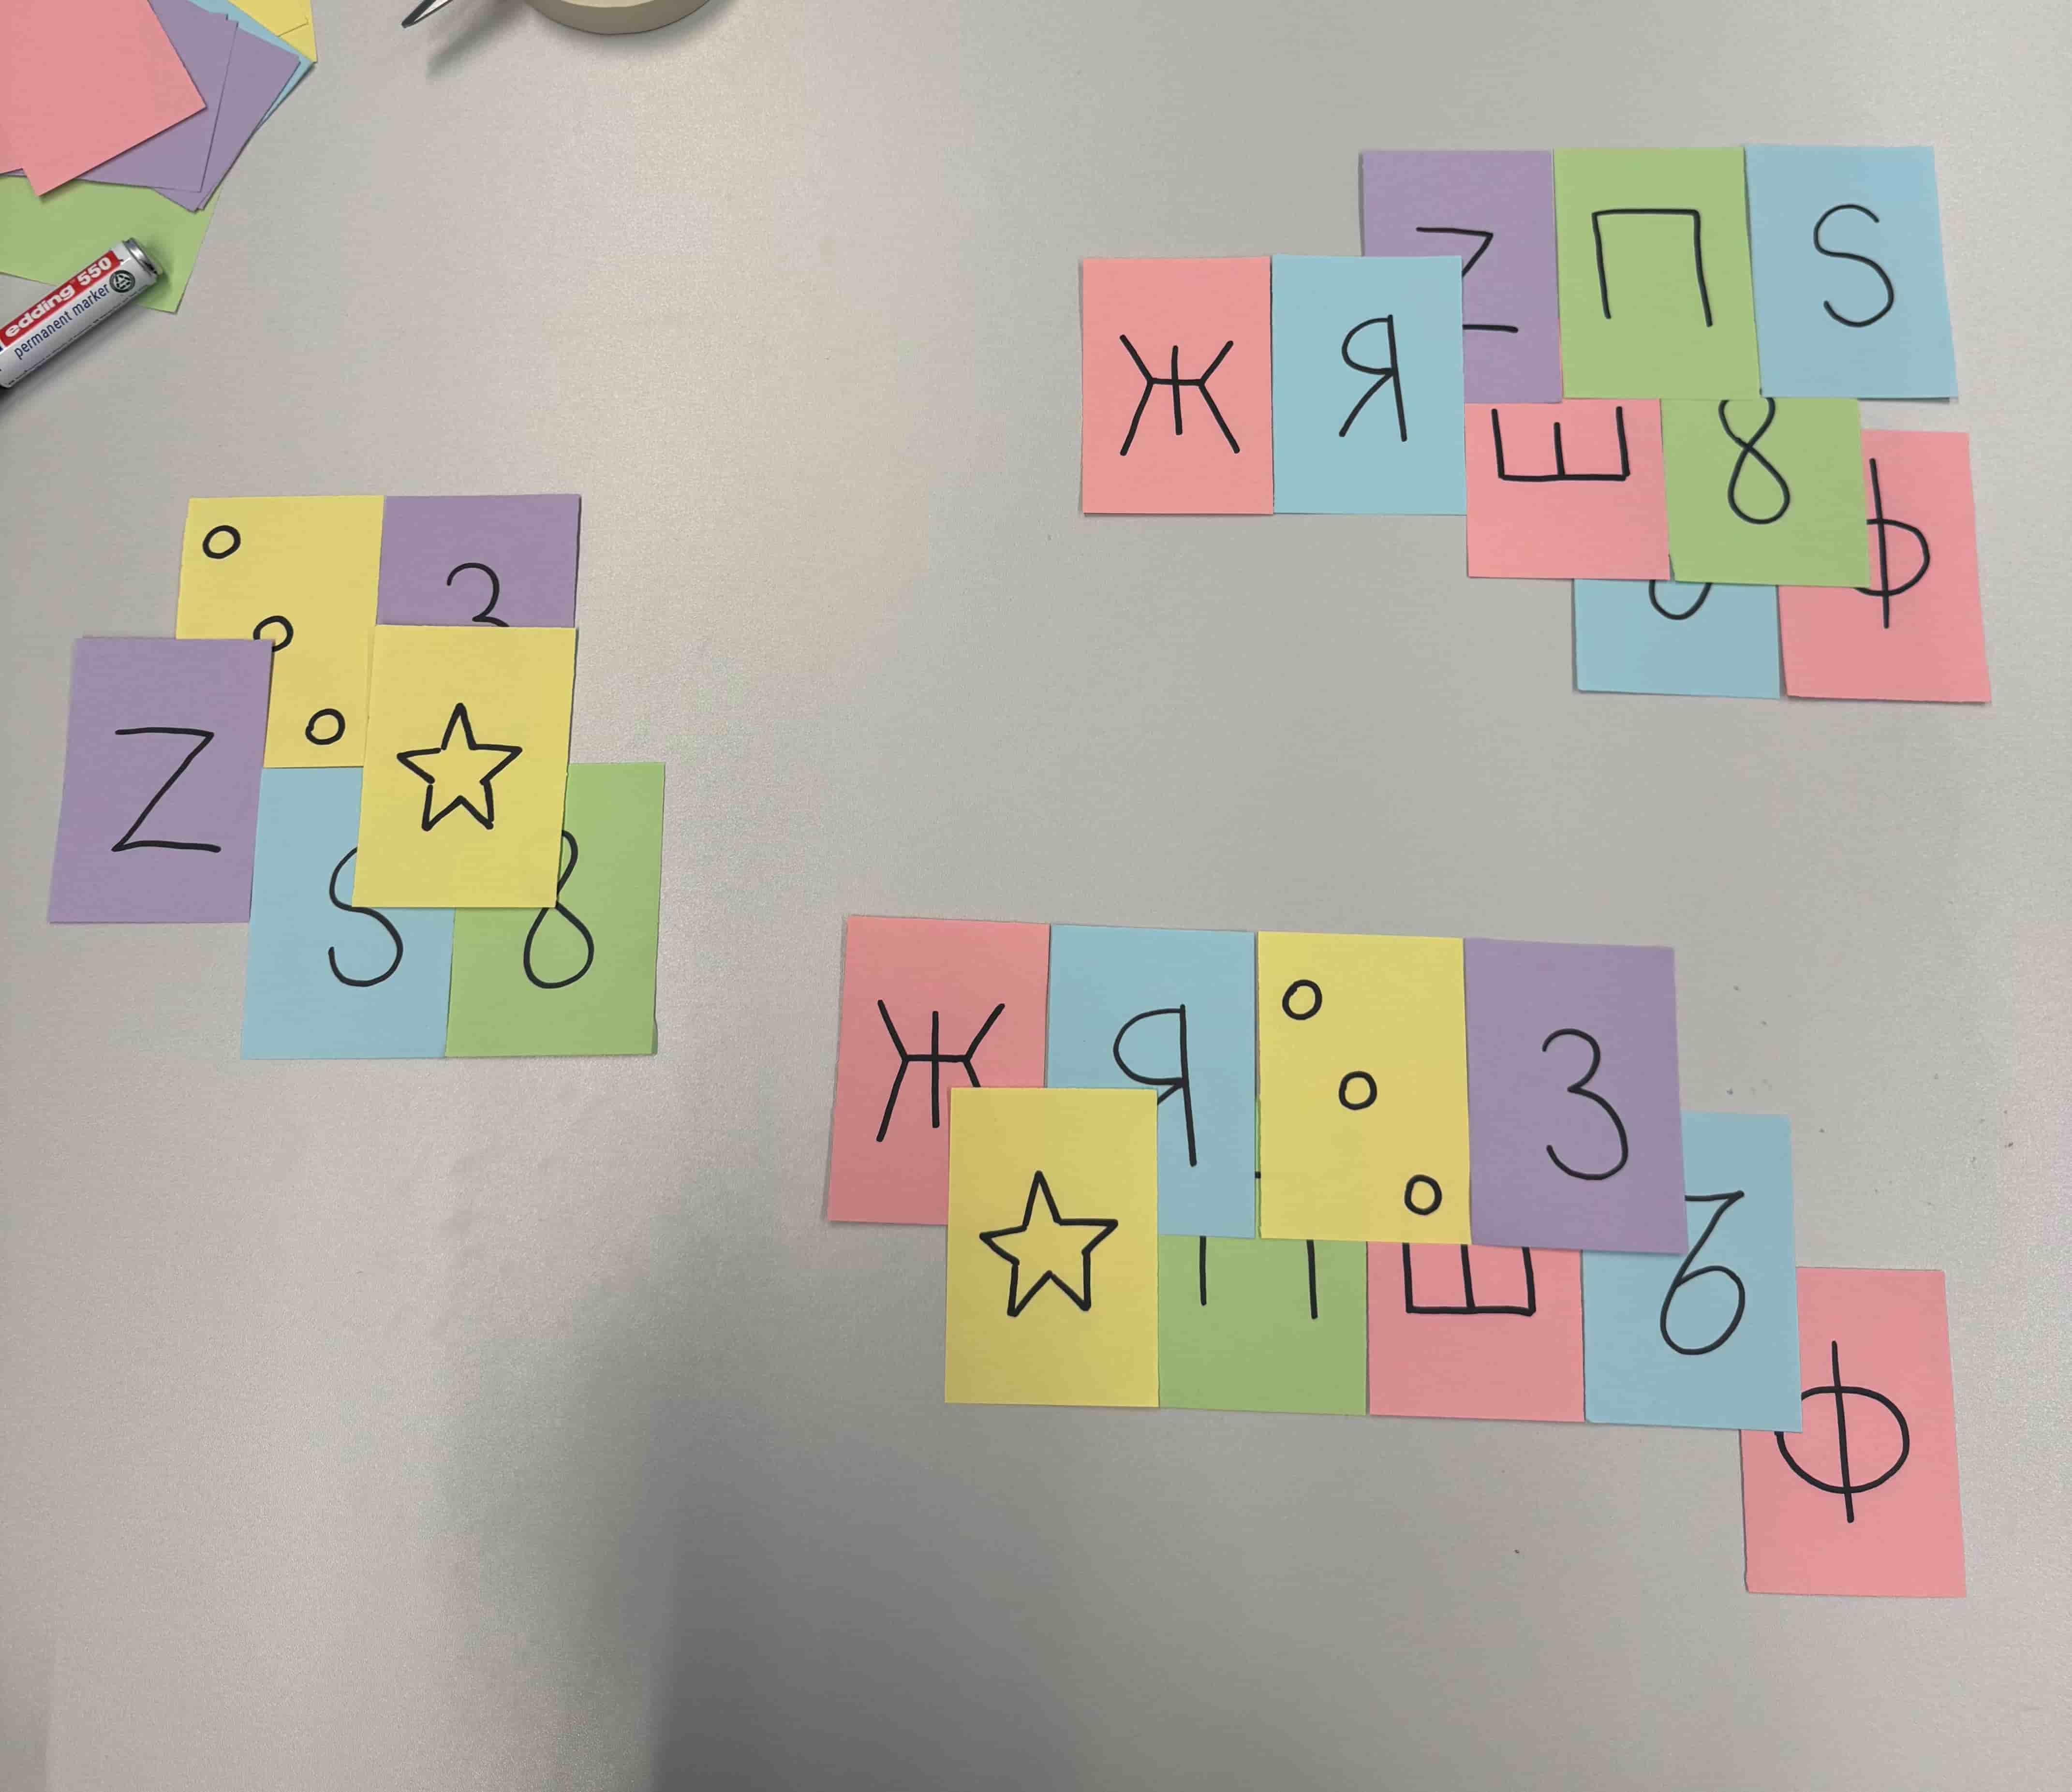 edding 550
permanent marker
Z П S
Ж Я
Ш 8
Ф
3
Z
S 8
Ж Я 3
П Ш Ѣ
Ф